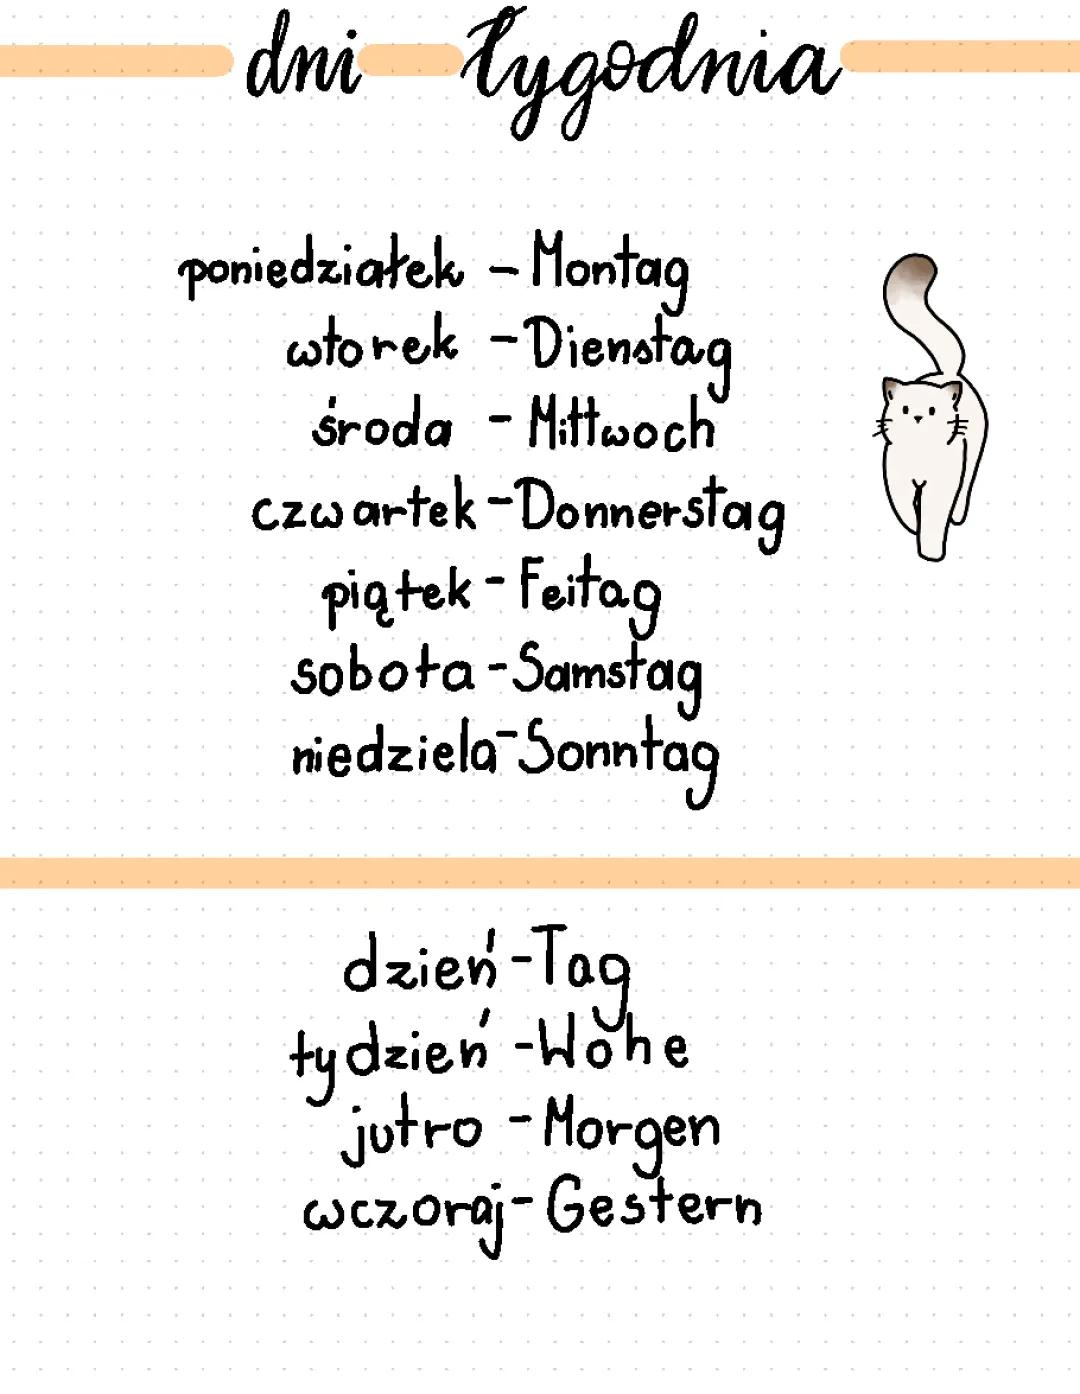 dni tygodnia
poniedziałek - Montag
wtorek - Dienstag
środa - Mittwoch
czwartek - Donnerstag
piątek - Feitag
sobota - Samstag
niedziela - Sonntag
dzień - Tag
tydzień - Wohe
jutro - Morgen
wczoraj - Gestern